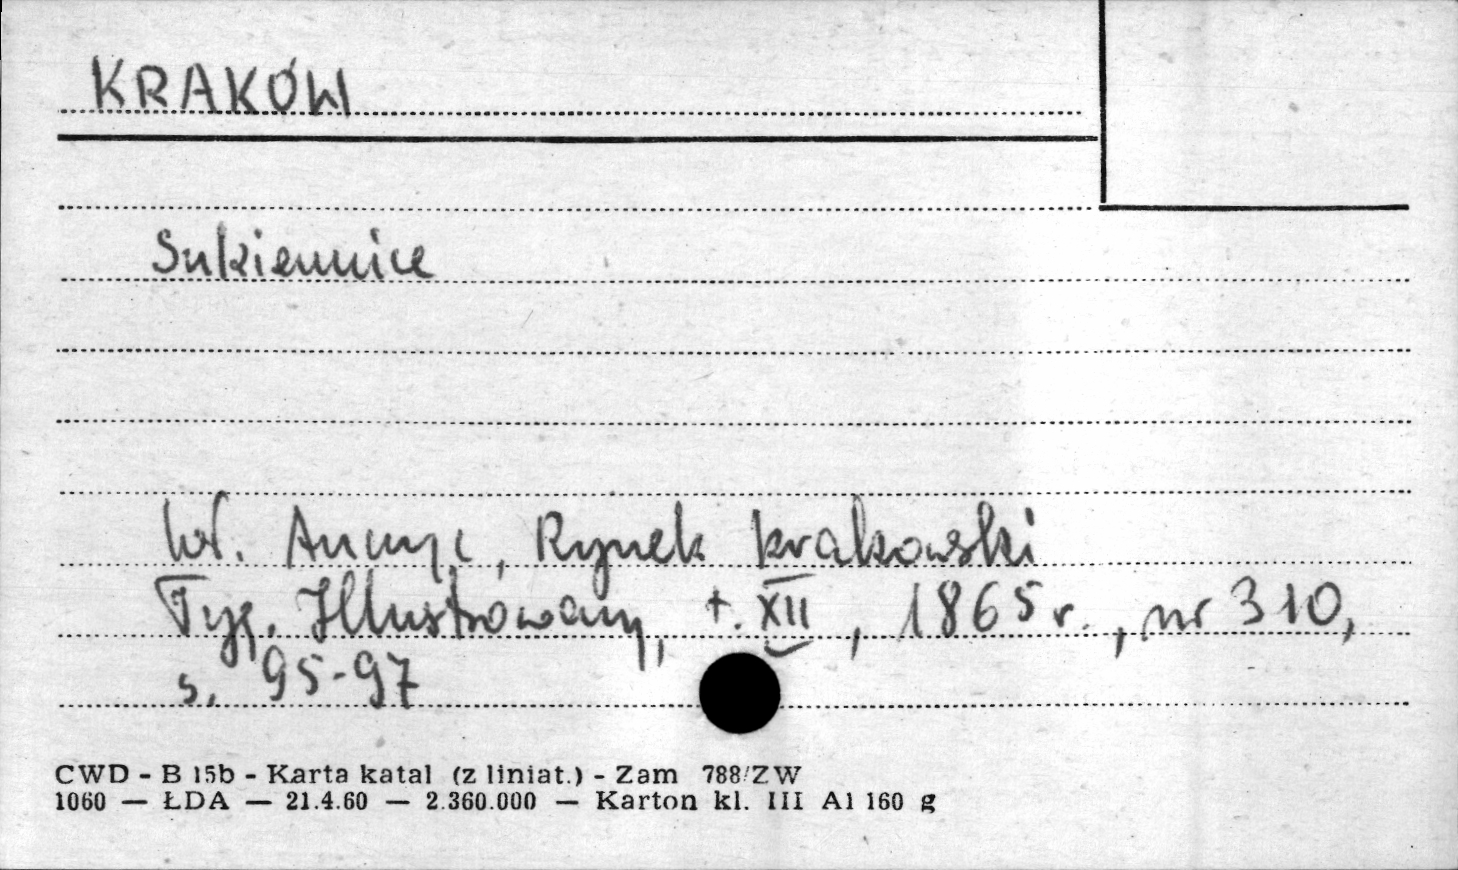 KRAKÓW
Sukiennice
Wł. Anczyc, Rynek krakowski
Tyg. Illustrowany, t. XII, 1865 r., nr 310,
s. 95-97
CWD - B 15b - Karta katal (z liniat.) - Zam 788/ZW
1060 — ŁDA — 21.4.60 — 2.360.000 — Karton kl. III A1 160 g